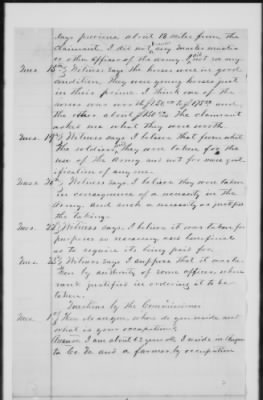 days previous about 18 miles from the
claimant. I did not see any quartermaster
or other officer of the army. Did not see any
Ques. 15th) Witness says the horses were in good
condition. They were young horses just
in their prime. I think one of the
horses was worth $150.00 to $175.00 and
the other about $150.00. The claimant
asked me what they were worth.
Ques. 19th) Witness says I believe that from what
the soldiers said they were taken for the
use of the army and not for mere grat-
ification of any one.
Ques. 20th) Witness says I believe they were taken
in consequence of a necessity in the
Army, and such a necessity as justified
the taking.
Ques. 22d) Witness says, I believe it was taken for
purposes so necessary and beneficial
as to require its being paid for.
Ques. 23d) Witness says I suppose that it was ta-
ken by authority of some officer, whose
rank justified in ordering it to be
taken.
Questions by the Commissioner
Ques. 1st) Where do you reside and
what is your occupation.
Answer. I am about 62 years old, I reside in
Co. Va and a farmer by occupation